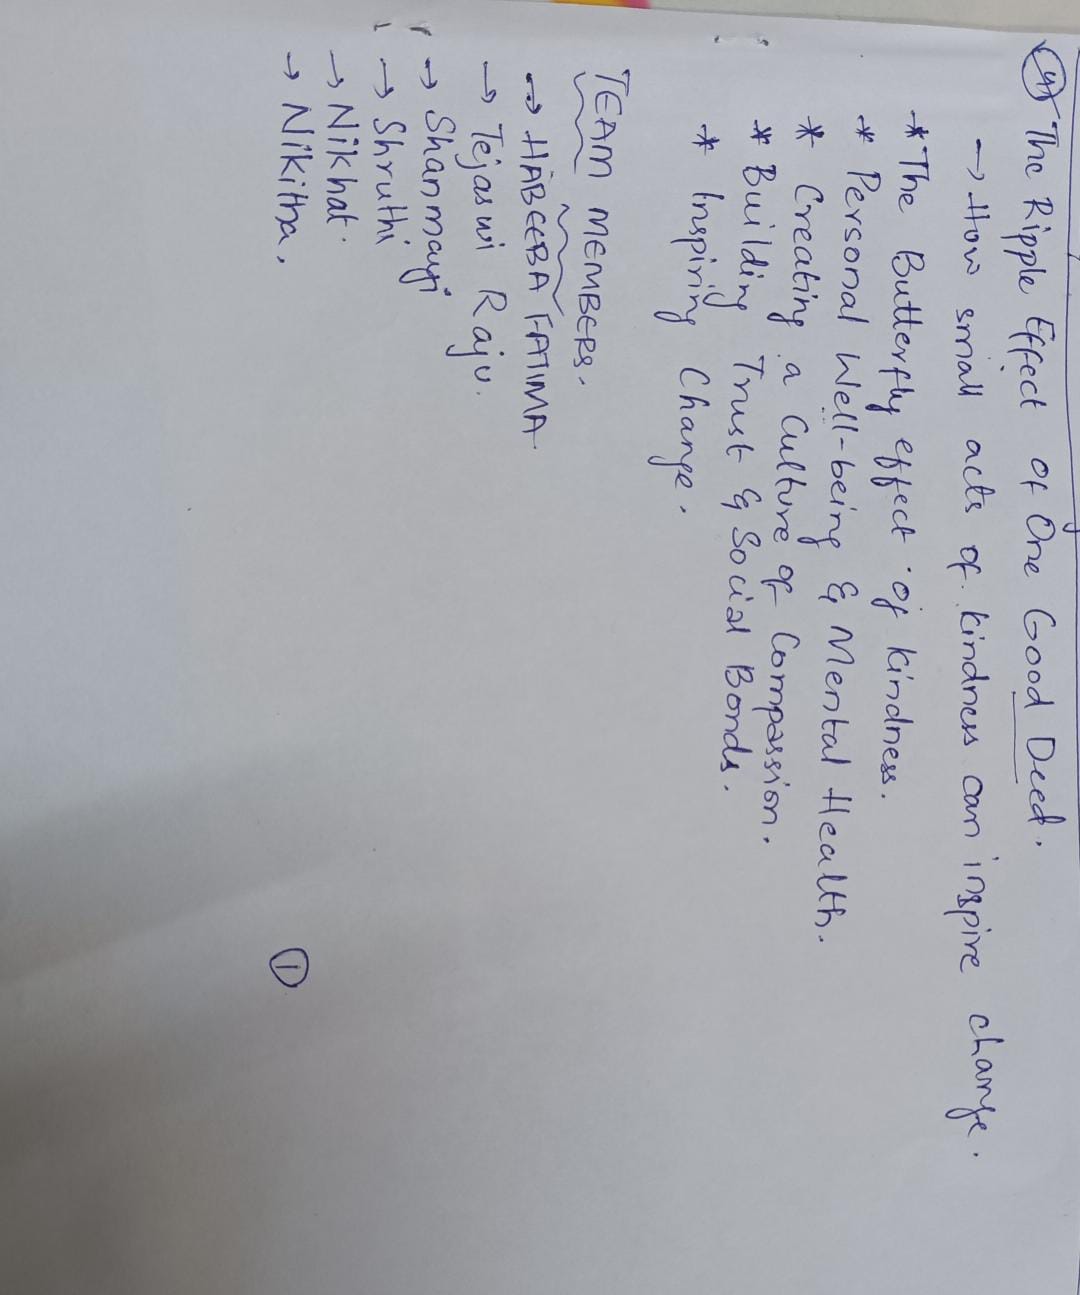 (4) The Ripple Effect of One Good Deed.
→ How small acts of kindness can inspire change.
* The Butterfly effect of kindness.
* Personal Well-being & Mental Health.
* Creating a Culture of Compassion.
* Building Trust & Social Bonds.
* Inspiring Change.
TEAM MEMBERS.
→ HABEEBA FATIMA
→ Tejaswi Raju.
→ Shanmayi
→ Shruthi
→ Nikhat.
→ Nikitha.
(1)